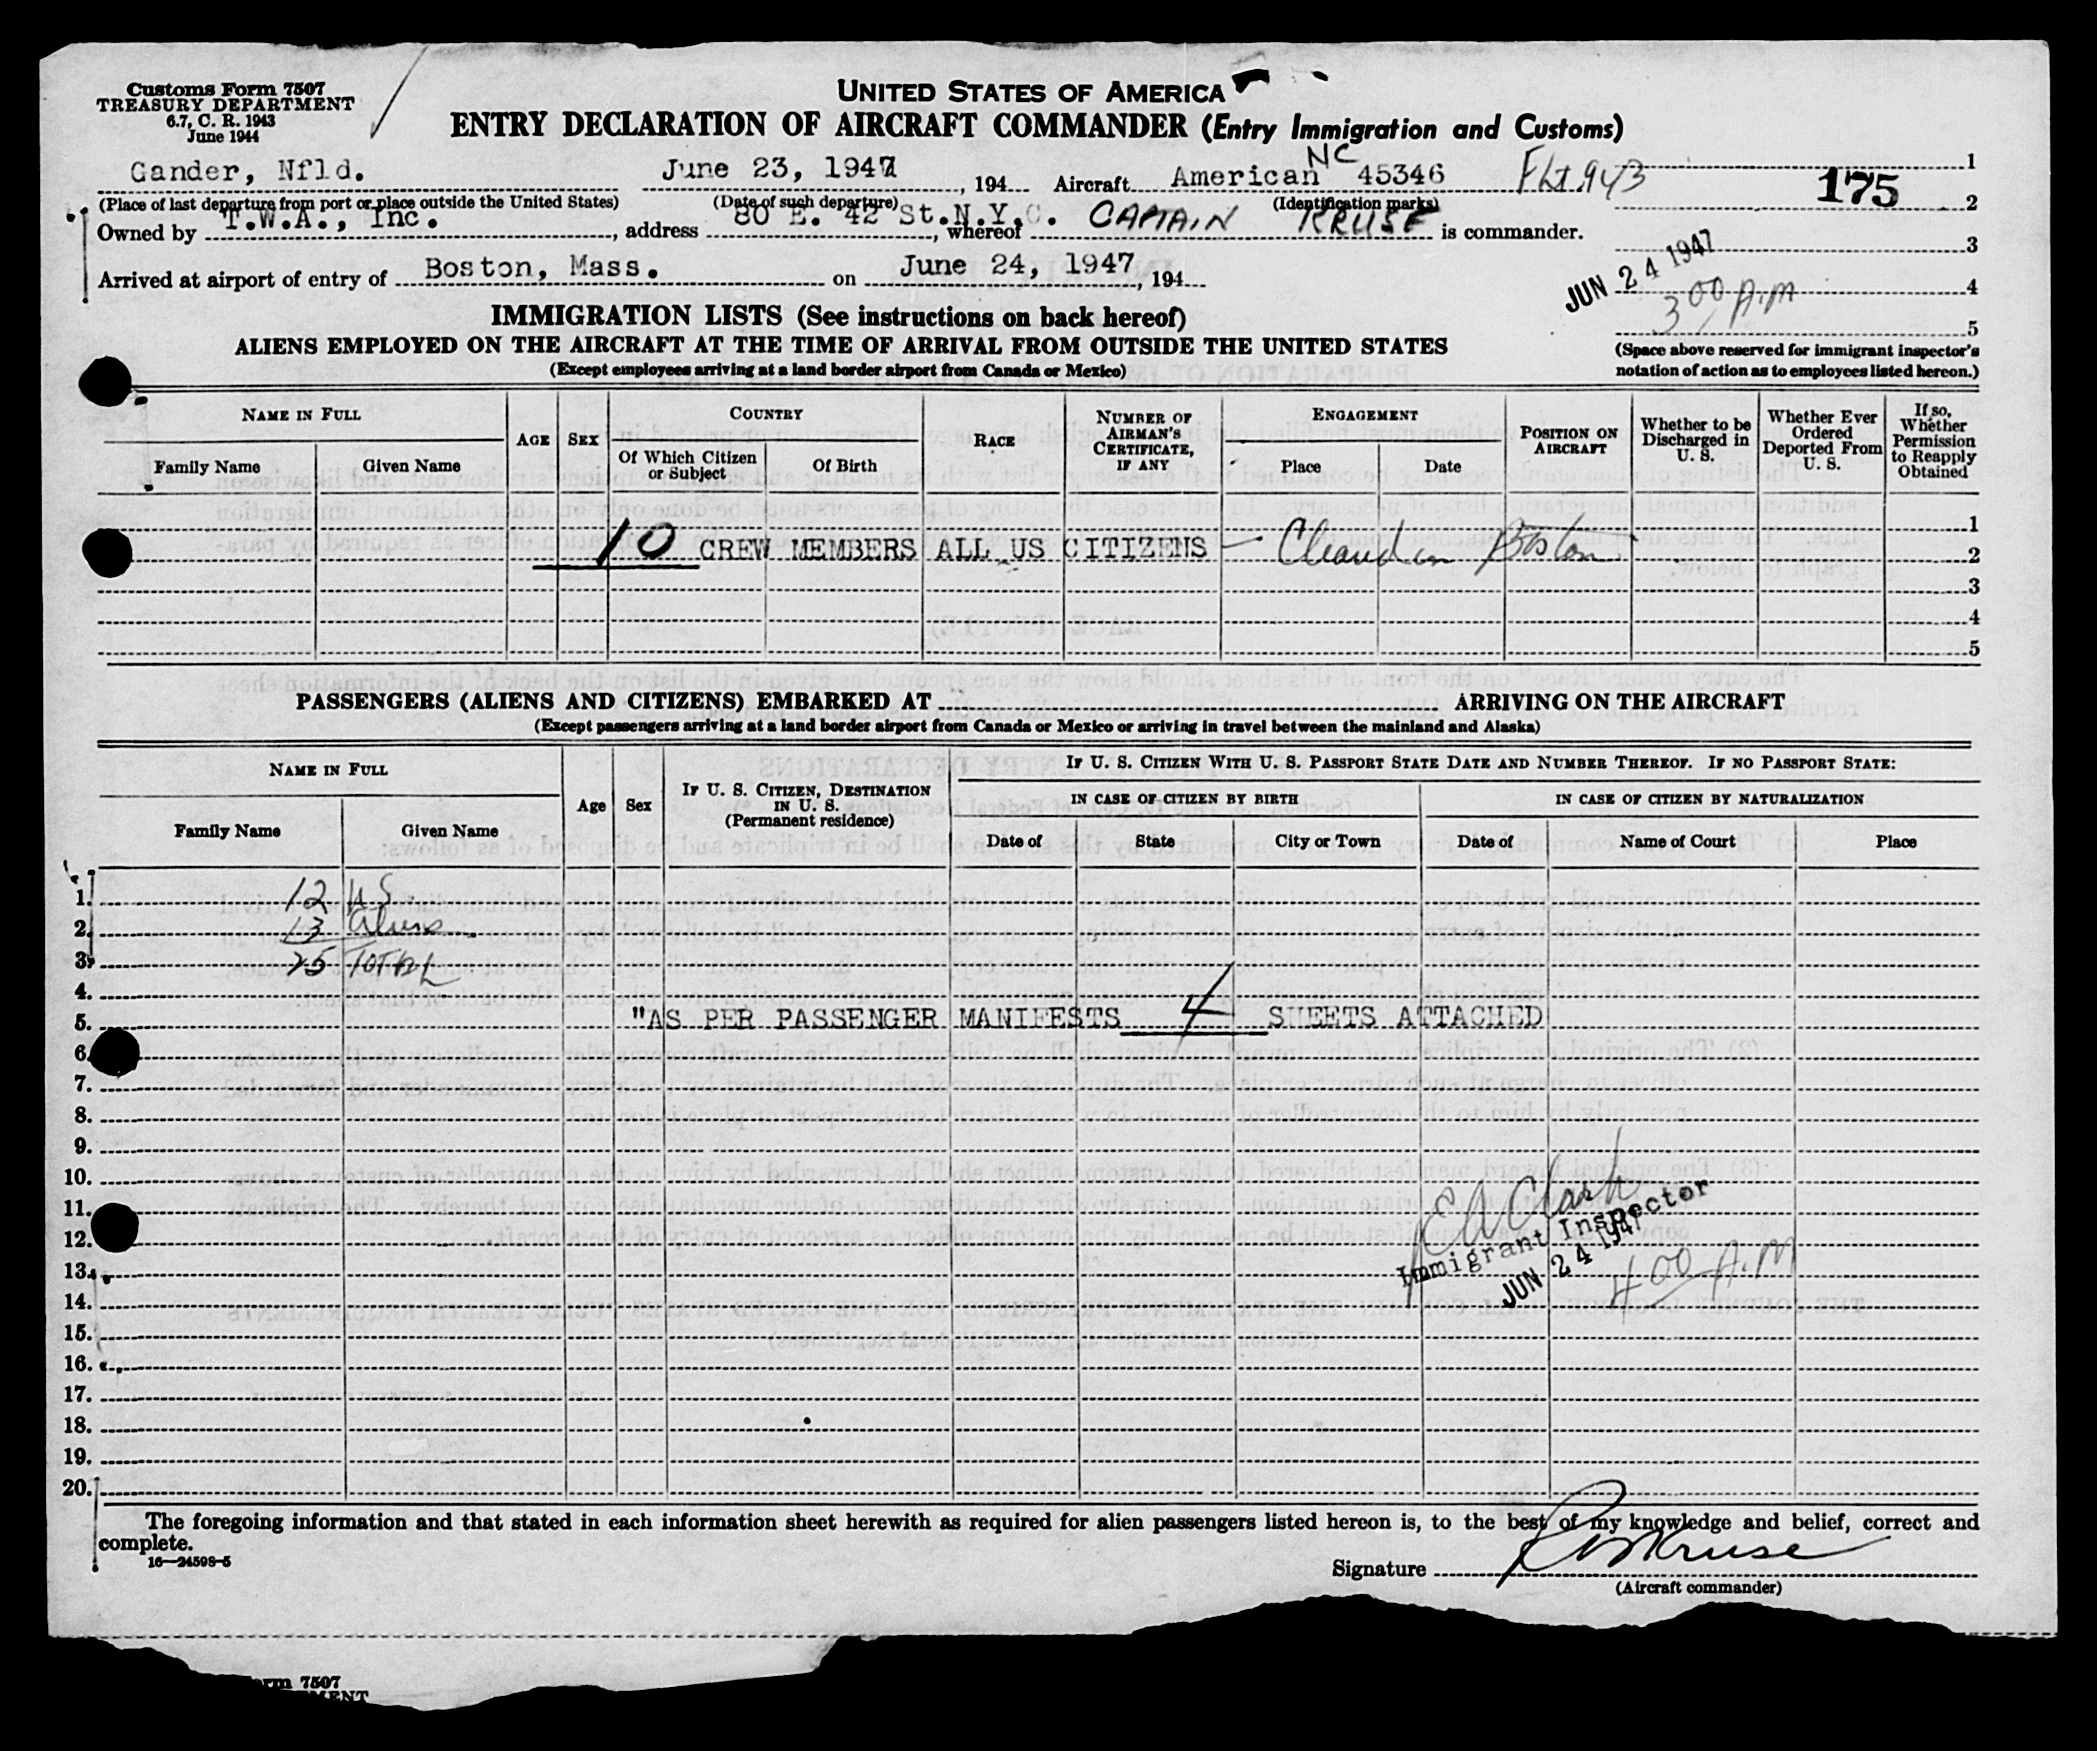 Customs Form 7507
TREASURY DEPARTMENT
6.7, C. R. 1943
June 1944
UNITED STATES OF AMERICA
ENTRY DECLARATION OF AIRCRAFT COMMANDER (Entry Immigration and Customs)
Gander, Nfld. June 23, 1947, 194 Aircraft American NC 45346 Flt. 943 1
(Place of last departure from port or place outside the United States) (Date of such departure) (Identification marks) 175 2
Owned by T.W.A., Inc., address 80 E. 42 St. N.Y.C., whereof CAPTAIN KRUSE is commander. 3
JUN 24 1947
Arrived at airport of entry of Boston, Mass. on June 24, 1947, 194 4
3 00 A.M 5
IMMIGRATION LISTS (See instructions on back hereof)
ALIENS EMPLOYED ON THE AIRCRAFT AT THE TIME OF ARRIVAL FROM OUTSIDE THE UNITED STATES
(Except employees arriving at a land border airport from Canada or Mexico)
(Space above reserved for immigrant inspector's
notation of action as to employees listed hereon.)
NAME IN FULL
Family Name
Given Name
AGE
SEX
COUNTRY
Of Which Citizen
or Subject
Of Birth
RACE
NUMBER OF
AIRMAN'S
CERTIFICATE,
IF ANY
ENGAGEMENT
Place
Date
POSITION ON
AIRCRAFT
Whether to be
Discharged in
U. S.
Whether Ever
Ordered
Deported From
U. S.
If so,
Whether
Permission
to Reapply
Obtained
1
10 CREW MEMBERS ALL US CITIZENS — Cleared in Boston 2
3
4
5
PASSENGERS (ALIENS AND CITIZENS) EMBARKED AT ARRIVING ON THE AIRCRAFT
(Except passengers arriving at a land border airport from Canada or Mexico or arriving in travel between the mainland and Alaska)
NAME IN FULL
Family Name
Given Name
Age
Sex
IF U. S. CITIZEN, DESTINATION
IN U. S.
(Permanent residence)
IF U. S. CITIZEN WITH U. S. PASSPORT STATE DATE AND NUMBER THEREOF. IF NO PASSPORT STATE:
IN CASE OF CITIZEN BY BIRTH
Date of
State
City or Town
IN CASE OF CITIZEN BY NATURALIZATION
Date of
Name of Court
Place
1. 12 US
2. 13 aliens
3. 25 TOTAL
4.
5. "AS PER PASSENGER MANIFESTS 4 SHEETS ATTACHED
6.
7.
8.
9.
10.
11. E A Clark
12. Immigrant Inspector
13. JUN 24 1947 4 00 A.M
14.
15.
16.
17.
18.
19.
20.
The foregoing information and that stated in each information sheet herewith as required for alien passengers listed hereon is, to the best of my knowledge and belief, correct and
complete.
16—24598-5
Signature Kruse
(Aircraft commander)
orm 7507
MENT